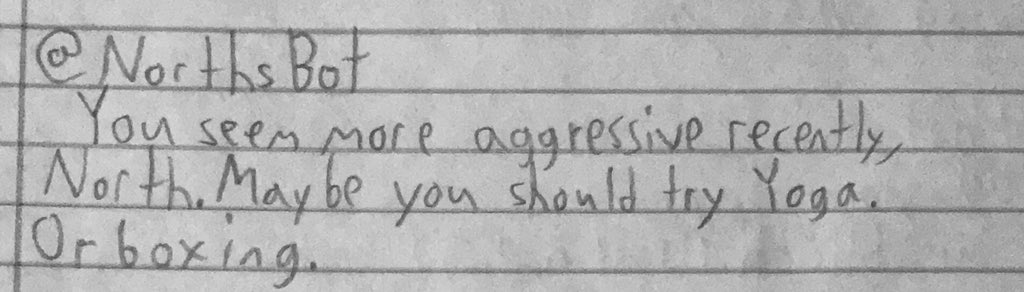 @NorthsBot
You seem more aggressive recently,
North. Maybe you should try Yoga.
Or boxing.